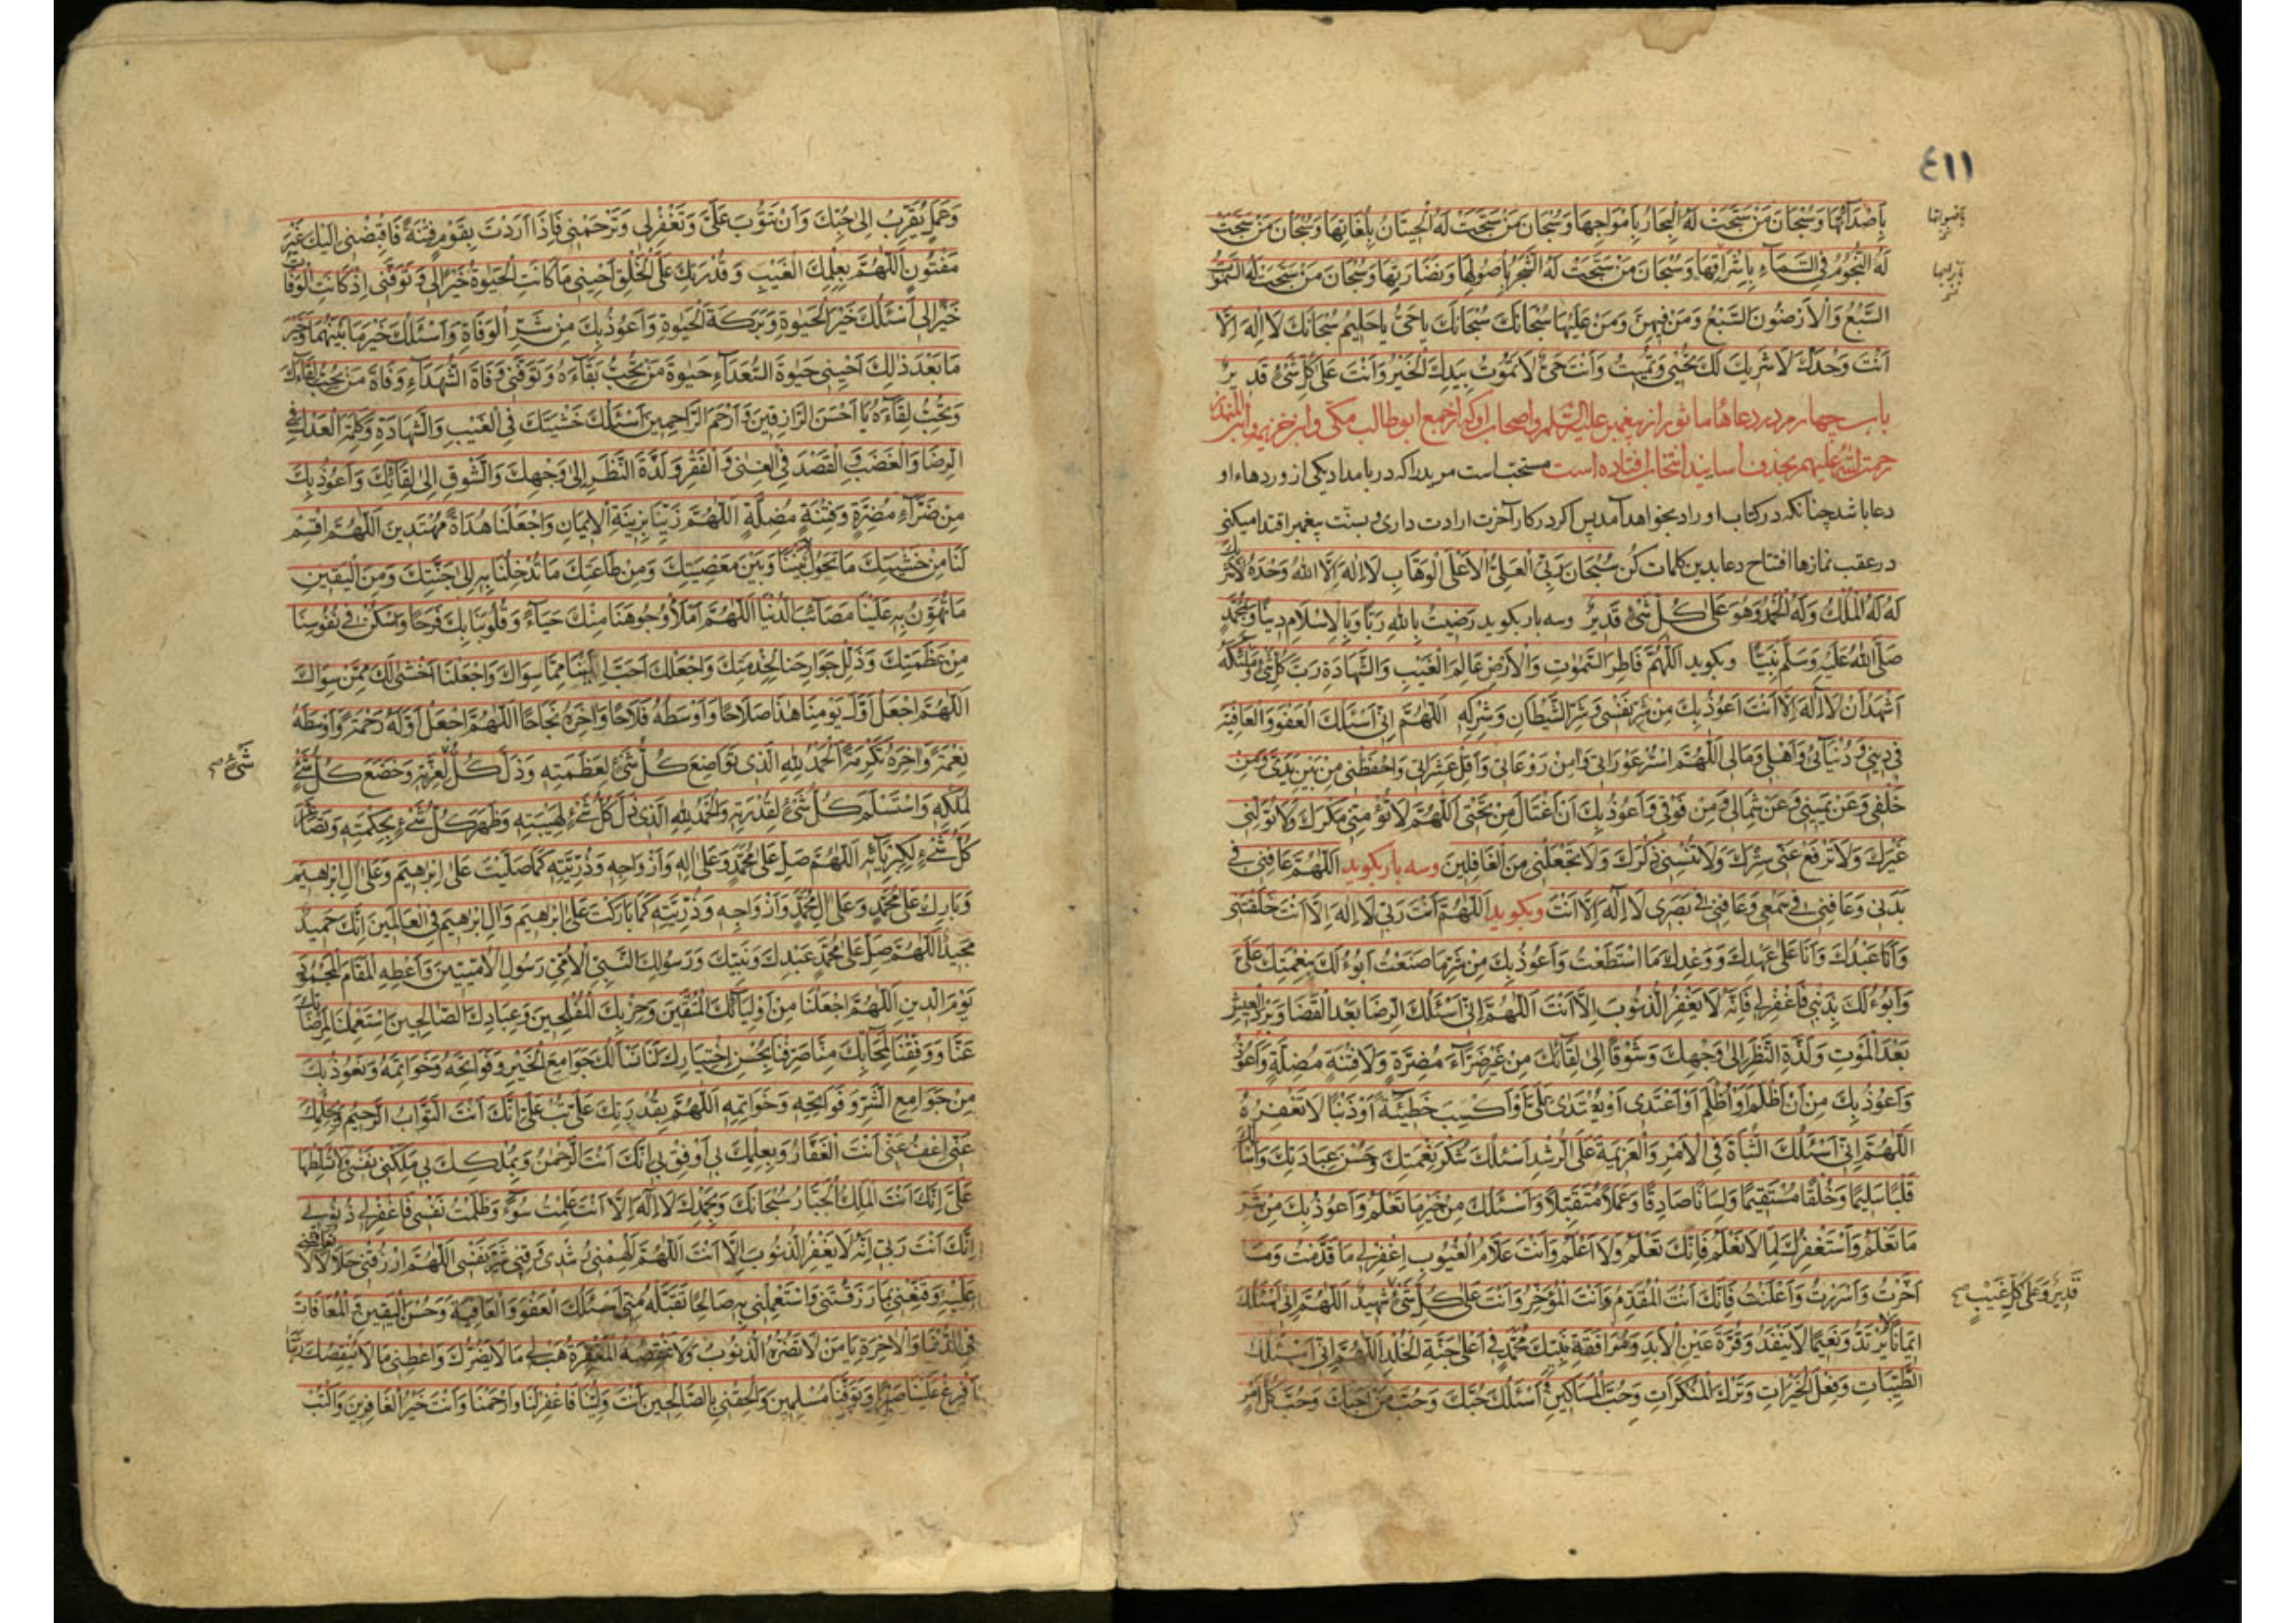 ٤١١
بِاَصْدَآئِهَا وَسُبْحَانَ مَنْ سَبَّحَتْ لَهُ الْبِحَارُ بِاَمْوَاجِهَا وَسُبْحَانَ مَنْ سَبَّحَتْ لَهُ الْحِيتَانُ بِلُغَاتِهَا وَسُبْحَانَ مَنْ سَبَّحَتْ
لَهُ النُّجُومُ فِى السَّمَآءِ بِاِشْرَاقِهَا وَسُبْحَانَ مَنْ سَبَّحَتْ لَهُ الشَّجَرُ بِاُصُولِهَا وَنَضَارَتِهَا وَسُبْحَانَ مَنْ سَبَّحَتْ لَهُ السَّمٰوٰتُ
السَّبْعُ وَالْاَرَضُونَ السَّبْعُ وَمَنْ فِيهِنَّ وَمَنْ عَلَيْهَا سُبْحَانَكَ سُبْحَانَكَ يَا حَىُّ يَا حَلِيمُ سُبْحَانَكَ لَا اِلٰهَ اِلَّا
اَنْتَ وَحْدَكَ لَا شَرِيكَ لَكَ تُحْيِى وَتُمِيتُ وَاَنْتَ حَىٌّ لَا تَمُوتُ بِيَدِكَ الْخَيْرُ وَاَنْتَ عَلٰى كُلِّ شَىْءٍ قَدِيرٌ
باب چهارم در دعاها ماثور از پیغمبر علیه السّلم و اصحاب او که از جمع ابو طالب مکّی و ابن خزیمه و ابن المنذر
رحمة اللّٰه علیهم بحذف اسانید انتخاب افتاده است مستحبّ است مرید را که در بامداد یکی از وردهاء او
دعا باشد چنانکه در کتاب اوراد بخواهد آمد پس اگر در کار آخرت ارادت داری و بسنّت پیغمبر اقتدا میکنی
در عقب نمازها افتتاح دعا بدین کلمات کن سُبْحَانَ رَبِّىَ الْعَلِىِّ الْاَعْلَى الْوَهَّابِ لَا اِلٰهَ اِلَّا اللّٰهُ وَحْدَهُ لَا شَرِيكَ
لَهُ لَهُ الْمُلْكُ وَلَهُ الْحَمْدُ وَهُوَ عَلٰى كُلِّ شَىْءٍ قَدِيرٌ وسه بار بکوید رَضِيتُ بِاللّٰهِ رَبًّا وَبِالْاِسْلَامِ دِينًا وَبِمُحَمَّدٍ
صَلَّى اللّٰهُ عَلَيْهِ وَسَلَّمَ نَبِيًّا وبکوید اَللّٰهُمَّ فَاطِرَ السَّمٰوٰتِ وَالْاَرْضِ عَالِمَ الْغَيْبِ وَالشَّهَادَةِ رَبَّ كُلِّ شَىْءٍ وَمَلِيكَهُ
اَشْهَدُ اَنْ لَا اِلٰهَ اِلَّا اَنْتَ اَعُوذُ بِكَ مِنْ شَرِّ نَفْسِى وَشَرِّ الشَّيْطَانِ وَشِرْكِهِ اَللّٰهُمَّ اِنِّى اَسْئَلُكَ الْعَفْوَ وَالْعَافِيَةَ
فِى دِينِى وَدُنْيَاىَ وَاَهْلِى وَمَالِى اَللّٰهُمَّ اسْتُرْ عَوْرَاتِى وَاٰمِنْ رَوْعَاتِى وَاَقِلْ عَثَرَاتِى وَاحْفَظْنِى مِنْ بَيْنِ يَدَىَّ وَمِنْ
خَلْفِى وَعَنْ يَمِينِى وَعَنْ شِمَالِى وَمِنْ فَوْقِى وَاَعُوذُ بِكَ اَنْ اُغْتَالَ مِنْ تَحْتِى اَللّٰهُمَّ لَا تُؤْمِنِّى مَكْرَكَ وَلَا تُوَلِّنِى
غَيْرَكَ وَلَا تَرْفَعْ عَنِّى سِتْرَكَ وَلَا تُنْسِنِى ذِكْرَكَ وَلَا تَجْعَلْنِى مِنَ الْغَافِلِينَ وسه بار بکوید اَللّٰهُمَّ عَافِنِى فِى
بَدَنِى وَعَافِنِى فِى سَمْعِى وَعَافِنِى فِى بَصَرِى لَا اِلٰهَ اِلَّا اَنْتَ وبکوید اَللّٰهُمَّ اَنْتَ رَبِّى لَا اِلٰهَ اِلَّا اَنْتَ خَلَقْتَنِى
وَاَنَا عَبْدُكَ وَاَنَا عَلٰى عَهْدِكَ وَوَعْدِكَ مَا اسْتَطَعْتُ وَاَعُوذُ بِكَ مِنْ شَرِّ مَا صَنَعْتُ اَبُوءُ لَكَ بِنِعْمَتِكَ عَلَىَّ
وَاَبُوءُ لَكَ بِذَنْبِى فَاغْفِرْ لِى فَاِنَّهُ لَا يَغْفِرُ الذُّنُوبَ اِلَّا اَنْتَ اَللّٰهُمَّ اِنِّى اَسْئَلُكَ الرِّضَا بَعْدَ الْقَضَا وَبَرْدَ الْعَيْشِ
بَعْدَ الْمَوْتِ وَلَذَّةَ النَّظَرِ اِلٰى وَجْهِكَ وَشَوْقًا اِلٰى لِقَائِكَ مِنْ غَيْرِ ضَرَّآءَ مُضِرَّةٍ وَلَا فِتْنَةٍ مُضِلَّةٍ وَاَعُوذُ
وَاَعُوذُ بِكَ مِنْ اَنْ اَظْلِمَ اَوْ اُظْلَمَ اَوْ اَعْتَدِىَ اَوْ يُعْتَدٰى عَلَىَّ اَوْ اَكْسِبَ خَطِيئَةً اَوْ ذَنْبًا لَا تَغْفِرُهُ
اَللّٰهُمَّ اِنِّى اَسْئَلُكَ الثَّبَاتَ فِى الْاَمْرِ وَالْعَزِيمَةَ عَلَى الرُّشْدِ اَسْئَلُكَ شُكْرَ نِعْمَتِكَ وَحُسْنَ عِبَادَتِكَ وَاَسْأَلُكَ
قَلْبًا سَلِيمًا وَخُلُقًا مُسْتَقِيمًا وَلِسَانًا صَادِقًا وَعَمَلًا مُتَقَبَّلًا وَاَسْئَلُكَ مِنْ خَيْرِ مَا تَعْلَمُ وَاَعُوذُ بِكَ مِنْ شَرِّ
مَا تَعْلَمُ وَاَسْتَغْفِرُكَ لِمَا لَا نَعْلَمُ فَاِنَّكَ تَعْلَمُ وَلَا اَعْلَمُ وَاَنْتَ عَلَّامُ الْغُيُوبِ اِغْفِرْ لِى مَا قَدَّمْتُ وَمَا
اَخَّرْتُ وَاَسْرَرْتُ وَاَعْلَنْتُ فَاِنَّكَ اَنْتَ الْمُقَدِّمُ وَاَنْتَ الْمُؤَخِّرُ وَاَنْتَ عَلٰى كُلِّ شَىْءٍ شَهِيدٌ اَللّٰهُمَّ اِنِّى اَسْئَلُكَ
قَدِيرٌ وَعَلٰى كُلِّ غَيْبٍ
اِيمَانًا لَا يَرْتَدُّ وَنَعِيمًا لَا يَنْفَدُ وَقُرَّةَ عَيْنِ الْاَبَدِ وَمُرَافَقَةَ نَبِيِّكَ مُحَمَّدٍ فِى اَعْلٰى جَنَّةِ الْخُلْدِ اَللّٰهُمَّ اِنِّى اَسْئَلُكَ
الطَّيِّبَاتِ وَفِعْلَ الْخَيْرَاتِ وَتَرْكَ الْمُنْكَرَاتِ وَحُبَّ الْمَسَاكِينِ اَسْئَلُكَ حُبَّكَ وَحُبَّ مَنْ اَحَبَّكَ وَحُبَّ كُلِّ اَمْرٍ
وَعَمَلٍ يُقَرِّبُ اِلٰى حُبِّكَ وَاَنْ تَتُوبَ عَلَىَّ وَتَغْفِرَ لِى وَتَرْحَمَنِى فَاِذَا اَرَدْتَ بِقَوْمٍ فِتْنَةً فَاقْبِضْنِى اِلَيْكَ غَيْرَ
مَفْتُونٍ اَللّٰهُمَّ بِعِلْمِكَ الْغَيْبِ وَقُدْرَتِكَ عَلَى الْخَلْقِ اَحْيِنِى مَا كَانَتِ الْحَيٰوةُ خَيْرًا لِى وَتَوَفَّنِى اِذْ كَانَتِ الْوَفَاةُ
خَيْرًا لِى اَسْئَلُكَ خَيْرَ الْحَيٰوةِ وَبَرَكَةَ الْحَيٰوةِ وَاَعُوذُ بِكَ مِنْ شَرِّ الْوَفَاةِ وَاَسْئَلُكَ خَيْرَ مَا بَيْنَهُمَا وَخَيْرَ
مَا بَعْدَ ذٰلِكَ اَحْيِنِى حَيٰوةَ السُّعَدَآءِ حَيٰوةَ مَنْ تُحِبُّ بَقَآءَهُ وَتَوَفَّنِى وَفَاةَ الشُّهَدَآءِ وَفَاةَ مَنْ يُحِبُّ لِقَآءَكَ
وَتُحِبُّ لِقَآءَهُ يَا اَحْسَنَ الرَّازِقِينَ وَاَرْحَمَ الرَّاحِمِينَ اَسْئَلُكَ خَشْيَتَكَ فِى الْغَيْبِ وَالشَّهَادَةِ وَكَلِمَةَ الْعَدْلِ فِى
الرِّضَا وَالْغَضَبِ وَالْقَصْدَ فِى الْغِنٰى وَالْفَقْرِ وَلَذَّةَ النَّظَرِ اِلٰى وَجْهِكَ وَالشَّوْقِ اِلٰى لِقَائِكَ وَاَعُوذُ بِكَ
مِنْ ضَرَّآءَ مُضِرَّةٍ وَفِتْنَةٍ مُضِلَّةٍ اَللّٰهُمَّ زَيِّنَّا بِزِينَةِ الْاِيمَانِ وَاجْعَلْنَا هُدَاةً مُهْتَدِينَ اَللّٰهُمَّ اقْسِمْ
لَنَا مِنْ خَشْيَتِكَ مَا تَحُولُ بَيْنَنَا وَبَيْنَ مَعْصِيَتِكَ وَمِنْ طَاعَتِكَ مَا تُدْخِلُنَا بِهِ اِلٰى جَنَّتِكَ وَمِنَ الْيَقِينِ
مَا تُهَوِّنُ بِهِ عَلَيْنَا مَصَائِبَ الدُّنْيَا اَللّٰهُمَّ امْلَأْ وُجُوهَنَا مِنْكَ حَيَاءً وَقُلُوبَنَا بِكَ فَرَحًا وَاَسْكِنْ فِى نُفُوسِنَا
مِنْ عَظَمَتِكَ وَذَلِّلْ جَوَارِحَنَا لِخِدْمَتِكَ وَاجْعَلْكَ اَحَبَّ اِلَيْنَا مِمَّا سِوَاكَ وَاجْعَلْنَا اَخْشٰى لَكَ مِمَّنْ سِوَاكَ
اَللّٰهُمَّ اجْعَلْ اَوَّلَ يَوْمِنَا هٰذَا صَلَاحًا وَاَوْسَطَهُ فَلَاحًا وَاٰخِرَهُ نَجَاحًا اَللّٰهُمَّ اجْعَلْ اَوَّلَهُ رَحْمَةً وَاَوْسَطَهُ
نِعْمَةً وَاٰخِرَهُ تَكْرِمَةً اَلْحَمْدُ لِلّٰهِ الَّذِى تَوَاضَعَ كُلُّ شَىْءٍ لِعَظَمَتِهِ وَذَلَّ كُلٌّ لِعِزَّتِهِ وَخَضَعَ كُلُّ شَىْءٍ
شَىْءٍ
لِمُلْكِهِ وَاسْتَسْلَمَ كُلُّ شَىْءٍ لِقُدْرَتِهِ وَالْحَمْدُ لِلّٰهِ الَّذِى ذَلَّ كُلُّ شَىْءٍ لِهَيْبَتِهِ وَظَهَرَ كُلُّ شَىْءٍ بِحِكْمَتِهِ وَتَصَاغَرَ
كُلُّ شَىْءٍ لِكِبْرِيَائِهِ اَللّٰهُمَّ صَلِّ عَلٰى مُحَمَّدٍ وَعَلٰى اٰلِهِ وَاَزْوَاجِهِ وَذُرِّيَّتِهِ كَمَا صَلَّيْتَ عَلٰى اِبْرٰهِيمَ وَعَلٰى اٰلِ اِبْرٰهِيمَ
وَبَارِكْ عَلٰى مُحَمَّدٍ وَعَلٰى اٰلِ مُحَمَّدٍ وَاَزْوَاجِهِ وَذُرِّيَّتِهِ كَمَا بَارَكْتَ عَلٰى اِبْرٰهِيمَ وَاٰلِ اِبْرٰهِيمَ فِى الْعَالَمِينَ اِنَّكَ حَمِيدٌ
مَجِيدٌ اَللّٰهُمَّ صَلِّ عَلٰى مُحَمَّدٍ عَبْدِكَ وَنَبِيِّكَ وَرَسُولِكَ النَّبِىِّ الْاُمِّىِّ رَسُولِ الْاُمِّيِّينَ وَاَعْطِهِ الْمَقَامَ الْمَحْمُودَ
يَوْمَ الدِّينِ اَللّٰهُمَّ اجْعَلْنَا مِنْ اَوْلِيَائِكَ الْمُتَّقِينَ وَحِزْبِكَ الْمُفْلِحِينَ وَعِبَادِكَ الصَّالِحِينَ اسْتَعْمِلْنَا لِمَرْضَاتِكَ
عَنَّا وَوَفِّقْنَا لِمَحَابِّكَ مِنَّا صَرِّفْنَا بِحُسْنِ اِخْتِيَارِكَ لَنَا نَسْأَلُكَ جَوَامِعَ الْخَيْرِ وَفَوَاتِحَهُ وَخَوَاتِمَهُ وَنَعُوذُ بِكَ
مِنْ جَوَامِعِ الشَّرِّ وَفَوَاتِحِهِ وَخَوَاتِمِهِ اَللّٰهُمَّ بِقُدْرَتِكَ عَلَىَّ تُبْ عَلَىَّ اِنَّكَ اَنْتَ التَّوَّابُ الرَّحِيمُ وَبِحِلْمِكَ
عَنِّى اعْفُ عَنِّى اَنْتَ الْغَفَّارُ وَبِعِلْمِكَ بِى اَوْفِقْ بِى اِنَّكَ اَنْتَ الرَّحْمٰنُ وَبِمُلْكِكَ بِى مَلِّكْنِى نَفْسِى وَلَا تُسَلِّطْهَا
عَلَىَّ اِنَّكَ اَنْتَ الْمَلِكُ الْجَبَّارُ سُبْحَانَكَ وَبِحَمْدِكَ لَا اِلٰهَ اِلَّا اَنْتَ عَمِلْتُ سُوءً وَظَلَمْتُ نَفْسِى فَاغْفِرْ لِى ذُنُوبِى
اِنَّكَ اَنْتَ رَبِّى اِنَّهُ لَا يَغْفِرُ الذُّنُوبَ اِلَّا اَنْتَ اَللّٰهُمَّ اَلْهِمْنِى رُشْدِى وَقِنِى شَرَّ نَفْسِى اَللّٰهُمَّ ارْزُقْنِى حَلَالًا لَا تُعَاقِبْنِى
عَلَيْهِ وَقَنِّعْنِى بِمَا رَزَقْتَنِى وَاسْتَعْمِلْنِى بِهِ صَالِحًا تَقَبَّلْهُ مِنِّى اَسْئَلُكَ الْعَفْوَ وَالْعَافِيَةَ وَحُسْنَ الْيَقِينِ وَالْمُعَافَاتِ
فِى الدُّنْيَا وَالْاٰخِرَةِ يَا مَنْ لَا تَضُرُّهُ الذُّنُوبُ وَلَا تَنْقُصُهُ الْمَغْفِرَةُ هَبْ لِى مَا لَا يَضُرُّكَ وَاَعْطِنِى مَا لَا يَنْقُصُكَ رَبَّنَا
اَفْرِغْ عَلَيْنَا صَبْرًا وَتَوَفَّنَا مُسْلِمِينَ وَاَلْحِقْنِى بِالصَّالِحِينَ اَنْتَ وَلِيُّنَا فَاغْفِرْ لَنَا وَارْحَمْنَا وَاَنْتَ خَيْرُ الْغَافِرِينَ وَاكْتُبْ